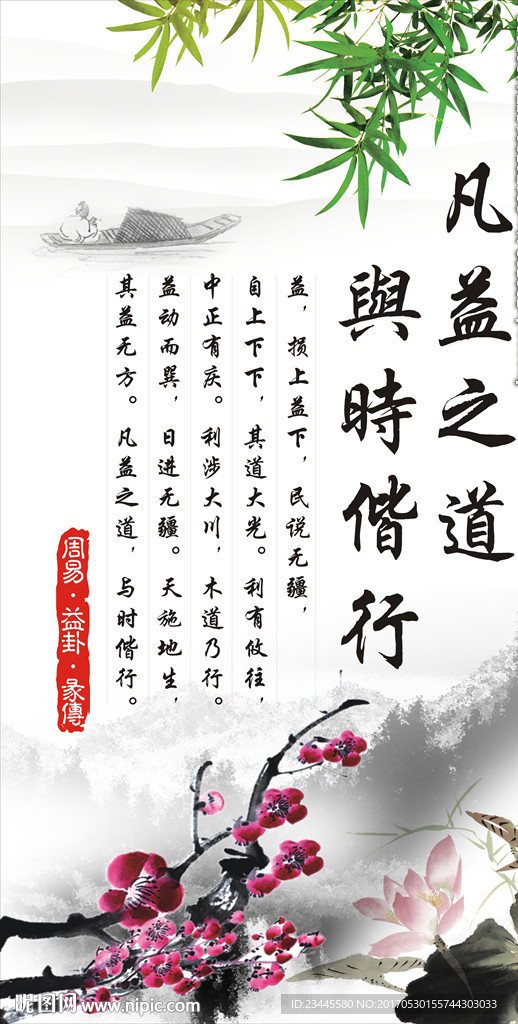 凡益之道
與時偕行
益，损上益下，民说无疆，
自上下下，其道大光。利有攸往，
中正有庆。利涉大川，木道乃行。
益动而巽，日进无疆。天施地生，
其益无方。凡益之道，与时偕行。
周易·益卦·彖傳
昵图网 www.nipic.com
ID:23445580 NO:20170530155744303033